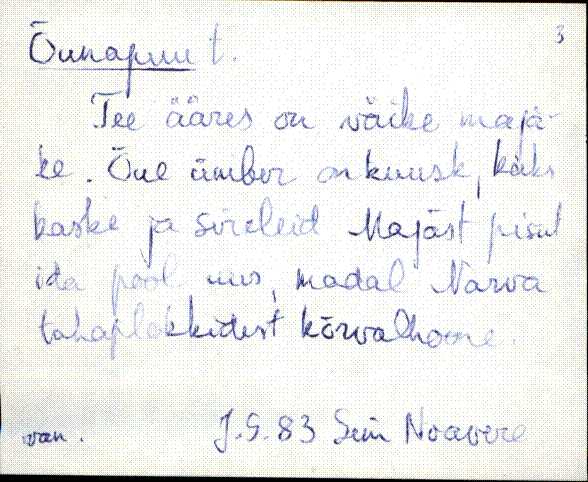 3
Õunapuu t.
Tee ääres on väike majä-
ke. Õue ümber on kuusk, kaks
kaske ja sireleid Majäst pisut
ida pool uus, madal Narva
tuhaplokkidest kõrvalhoone.
van. J.S.83 Siim Noavere